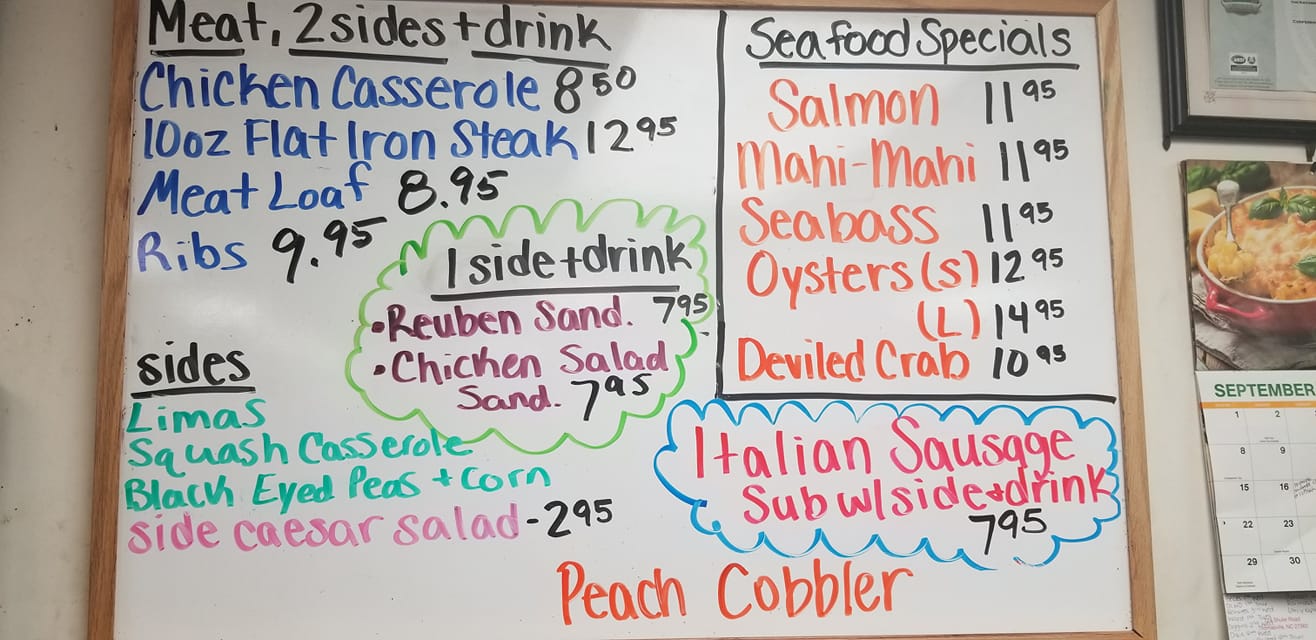 Meat, 2 sides + drink
Chicken Casserole 8 50
10oz Flat Iron Steak 12 95
Meat Loaf 8.95
Ribs 9.95
1 side + drink
•Reuben Sand. 7 95
•Chicken Salad
Sand. 7 95
sides
Limas
Squash Casserole
Black Eyed Peas + Corn
side caesar salad - 2 95
Seafood Specials
Salmon 11 95
Mahi-Mahi 11 95
Seabass 11 95
Oysters (s) 12 95
(L) 14 95
Deviled Crab 10 95
Italian Sausage
Sub w/ side + drink
7 95
Peach Cobbler
SEPTEMBER
1 2
8 9
15 16
22 23
29 30